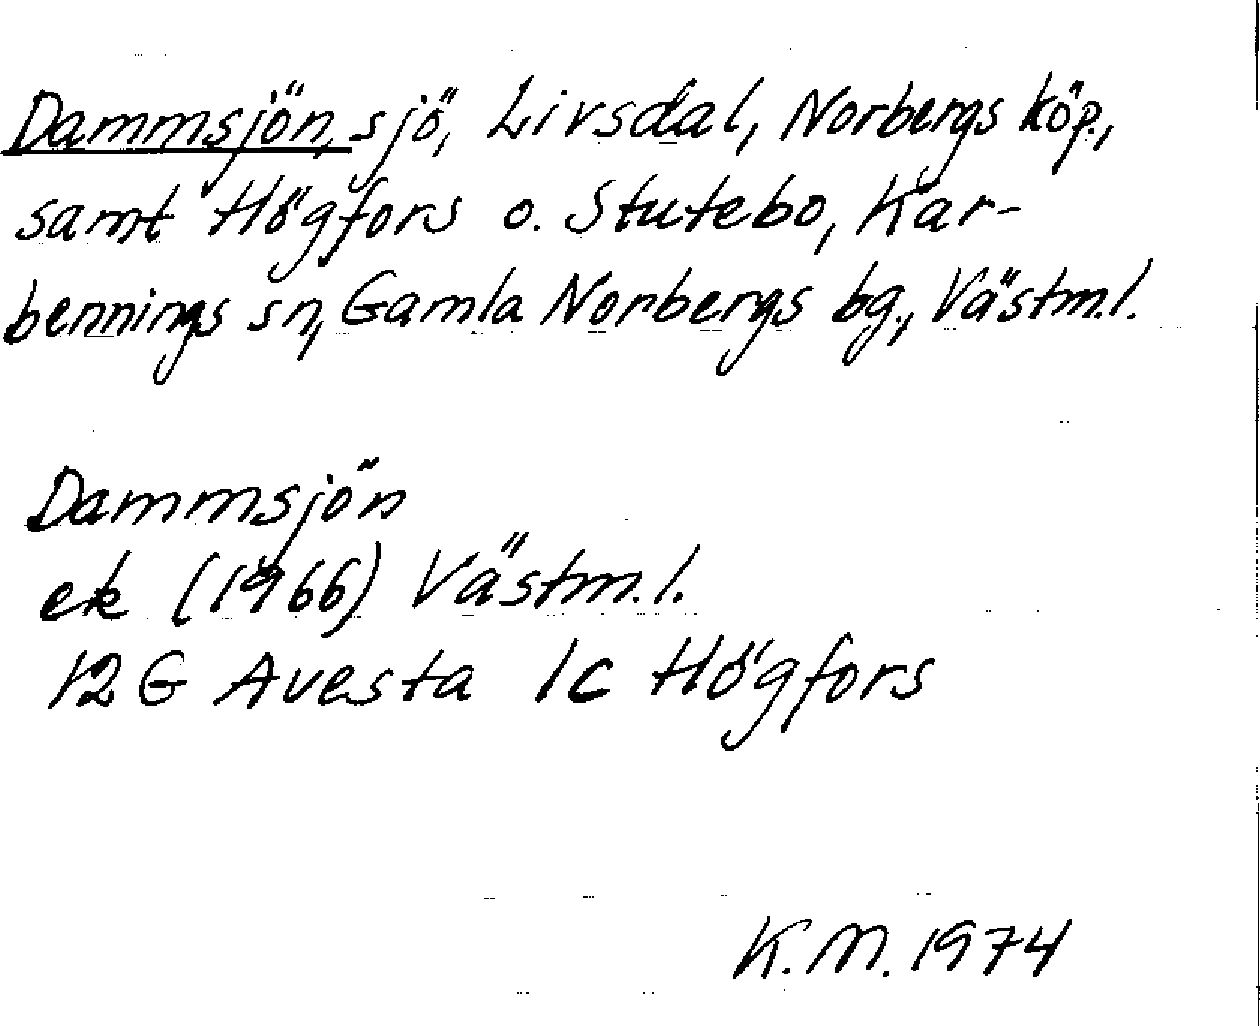 Dammsjön, sjö, Livsdal, Norbergs köp.,
samt Högfors o. Stutebo, Kar-
bennings sn, Gamla Norbergs bg., Västm.l.
Dammsjön
ek (1966) Västm.l.
12 G Avesta 1c Högfors
K.M. 1974